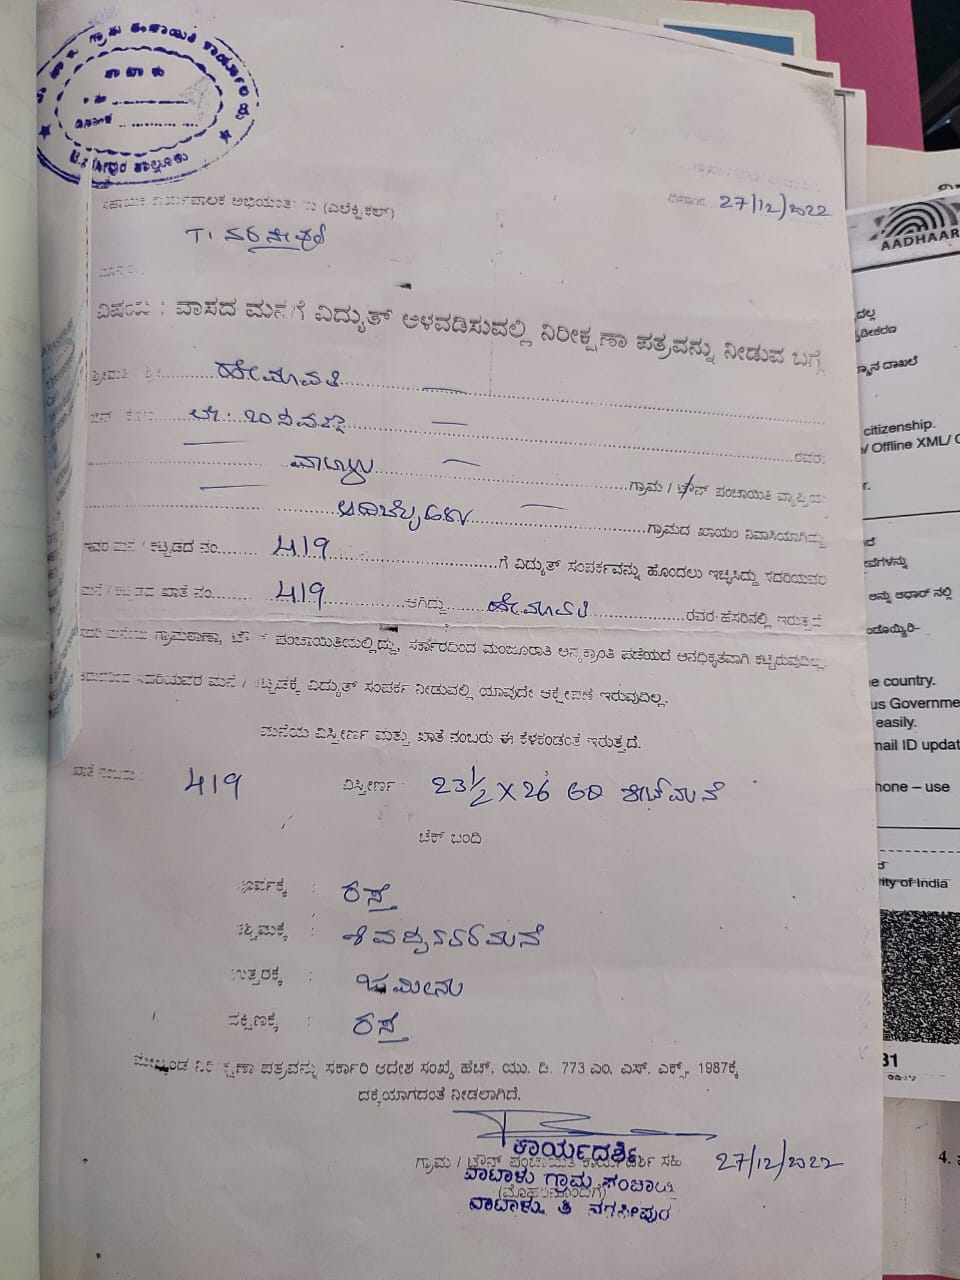 ವಾಟಾಳು
ದಿನಾಂಕ
ದಿನಾಂಕ 27/12/2022
ಸಹಾಯಕ ಕಾರ್ಯಪಾಲಕ ಅಭಿಯಂತರರು (ಎಲೆಕ್ಟ್ರಿಕಲ್)
T. ನರಸೀಪುರ
ವಿಷಯ : ವಾಸದ ಮನೆಗೆ ವಿದ್ಯುತ್ ಅಳವಡಿಸುವಲ್ಲಿ ನಿರೀಕ್ಷಣಾ ಪತ್ರವನ್ನು ನೀಡುವ ಬಗ್ಗೆ
ಶ್ರೀಮತಿ / ಶ್ರೀ ಹೇಮಾವತಿ
ರವರು
ವಾಟಾಳು ಗ್ರಾಮ / ಟೌನ್ ಪಂಚಾಯಿತಿ ವ್ಯಾಪ್ತಿಯ
ಗ್ರಾಮದ ಖಾಯಂ ನಿವಾಸಿಯಾಗಿದ್ದು
ಇವರ ಮನೆ / ಕಟ್ಟಡದ ನಂ. 419 ಗೆ ವಿದ್ಯುತ್ ಸಂಪರ್ಕವನ್ನು ಹೊಂದಲು ಇಚ್ಛಿಸಿದ್ದು ಸದರಿಯವರ
ಮನೆ / ಕಟ್ಟಡದ ಖಾತೆ ನಂ. 419 ಆಗಿದ್ದು ಹೇಮಾವತಿ ರವರ ಹೆಸರಿನಲ್ಲಿ ಇರುತ್ತದೆ
ಸದರಿ ಮನೆಯು ಗ್ರಾಮಠಾಣಾ, ಟೌನ್ ಪಂಚಾಯಿತಿಯಲ್ಲಿದ್ದು, ಸರ್ಕಾರದಿಂದ ಮಂಜೂರಾತಿ ಅನ್ಯಕ್ರಾಂತಿ ಪಡೆಯದೆ ಅನಧಿಕೃತವಾಗಿ ಕಟ್ಟಿರುವುದಿಲ್ಲ.
ಆದುದರಿಂದ ಸದರಿಯವರ ಮನೆ / ಕಟ್ಟಡಕ್ಕೆ ವಿದ್ಯುತ್ ಸಂಪರ್ಕ ನೀಡುವಲ್ಲಿ ಯಾವುದೇ ಆಕ್ಷೇಪಣೆ ಇರುವುದಿಲ್ಲ.
ಮನೆಯ ವಿಸ್ತೀರ್ಣ ಮತ್ತು ಖಾತೆ ನಂಬರು ಈ ಕೆಳಕಂಡಂತೆ ಇರುತ್ತದೆ.
ಖಾತೆ ನಂಬರು : 419 ವಿಸ್ತೀರ್ಣ : 23 1/2 X 26 ಅಡಿ ಶೀಟ್ ಮನೆ
ಚೆಕ್ ಬಂದಿ
ಪೂರ್ವಕ್ಕೆ : ರಸ್ತೆ
ಪಶ್ಚಿಮಕ್ಕೆ : ಮನೆ
ಉತ್ತರಕ್ಕೆ : ಜಮೀನು
ದಕ್ಷಿಣಕ್ಕೆ : ರಸ್ತೆ
ಮೇಲ್ಕಂಡ ನಿರೀಕ್ಷಣಾ ಪತ್ರವನ್ನು ಸರ್ಕಾರಿ ಆದೇಶ ಸಂಖ್ಯೆ ಹೆಚ್. ಯು. ಡಿ. 773 ಎಂ. ಎಸ್. ಎಕ್ಸ್. 1987ಕ್ಕೆ
ದಕ್ಕೆಯಾಗದಂತೆ ನೀಡಲಾಗಿದೆ.
ಕಾರ್ಯದರ್ಶಿ
ಗ್ರಾಮ / ಟೌನ್ ಪಂಚಾಯಿತಿ ಕಾರ್ಯದರ್ಶಿ ಸಹಿ 27/12/2022
ವಾಟಾಳು ಗ್ರಾಮ ಪಂಚಾಯಿತಿ
(ಮೊಹರಿನೊಂದಿಗೆ)
ವಾಟಾಳು, ತಿ ನರಸೀಪುರ
AADHAAR
citizenship.
/ Offline XML/
e country.
us Governme
easily.
nail ID updat
hone – use
rity of India
31
4.